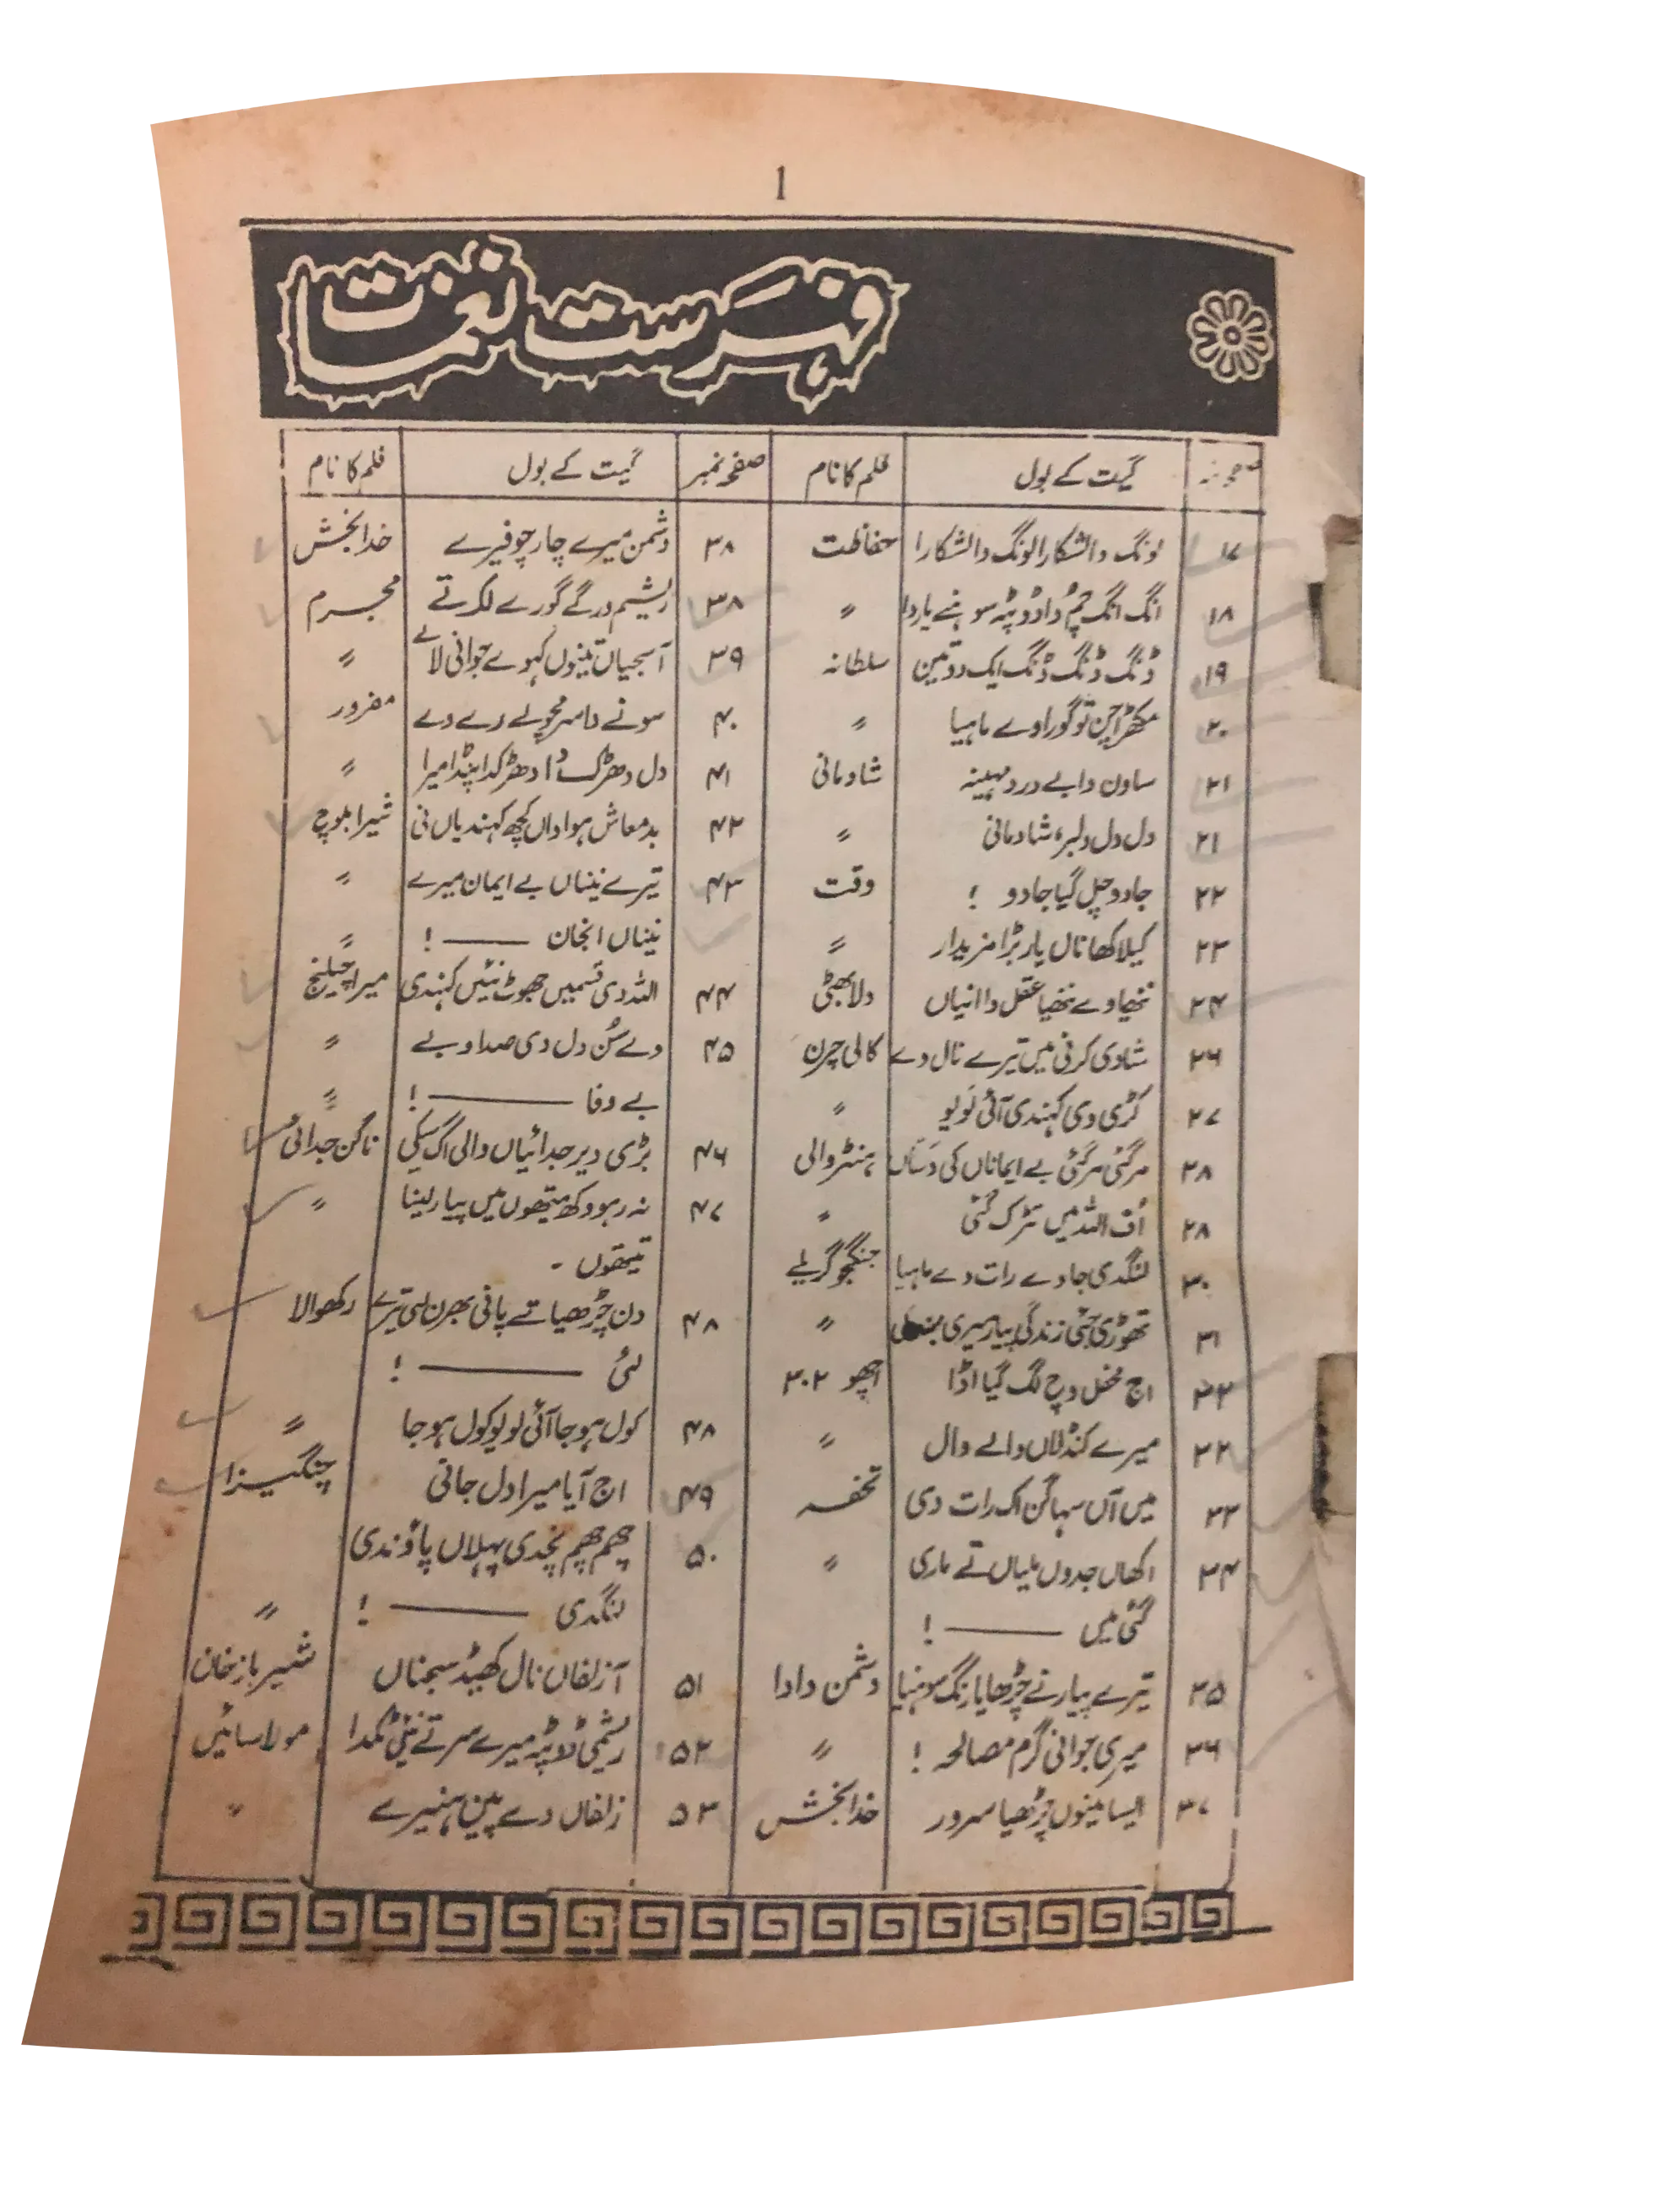 1
فہرست نغمات
صفحہ نمبر گیت کے بول فلم کا نام
۱۷ لونگ دا لشکارا لونگ دا لشکارا حفاظت
۱۸ انگ انگ چم دا دوپٹہ سوہنے یار دا 〃
۱۹ ڈنگ ڈنگ ڈنگ ایک دو تین سلطانہ
۲۰ مکھڑا چن تو گورا وے ماہیا 〃
۲۱ ساون دا بے درد مہینہ شادمانی
۲۱ دل دل دلبر، شادمانی 〃
۲۲ جادو چل گیا جادو ! وقت
۲۳ کیلا کھاناں یار بڑا مزیدار 〃
۲۴ نتھیا وے نتھیا عقل دا انیاں دلا بھٹی
۲۶ شادی کرنی میں تیرے نال دے کالی چرن
۲۷ کڑی وی کہندی آئی لو یو 〃
۲۸ مر گئی مر گئی بے ایماناں کی دساں ہنٹر والی
۲۸ اُف اللہ میں تڑک گئی 〃
۳۰ لنگدی جاوے رات دے ماہیا جنگجو گریلے
۳۱ تھوڑی جئی زندگی پیار میری 〃
۳۲ اج محفل وچ لگ گیا اڈا اچھو ۳۰۲
۳۲ میرے کنڈلاں والے وال 〃
۳۳ میں آں سہاگن اک رات دی تحفہ
۳۴ اکھاں جدوں ملیاں تے ماری 〃
گئی میں ——— !
۳۵ تیرے پیار نے چڑھایا رنگ سوہنیا دشمن دادا
۳۶ میری جوانی گرم مصالحہ ! 〃
۳۷ ایسا مینوں چڑھیا سرور خدا بخش
صفحہ نمبر گیت کے بول فلم کا نام
۳۸ دشمن میرے چار چوفیرے خدا بخش
۳۸ ریشم ورگے گورے لک تے مجرم
۳۹ آ سجیاں تینوں کہوے جوانی لالے 〃
۴۰ سونے دا سرمچو لے دے دے مفرور
۴۱ دل دھڑک دا دھڑکدا پنڈا میرا 〃
۴۲ بدمعاش ہواواں کچھ کہندیاں نی شیرا بلوچ
۴۳ تیرے نیناں بے ایمان میرے 〃
نیناں انجان ——— ! 〃
۴۴ اللہ دی قسمیں جھوٹ نئیں کہندی میرا چیلنج
۴۵ وے سُن دل دی صدا وے 〃
بے وفا ——— ! 〃
۴۶ بڑی دیر جدائیاں والی اگ سیکی ناگن جدائی
۴۷ نہ رہو وکھ میتھوں میں پیار لینا 〃
تیتھوں -
۴۸ دن چڑھیا تے پانی بھرن لئی تیرے رکھوالا
لئی ——— !
۴۸ کول ہو جا آئی لو یو کول ہو جا 〃
۴۹ اج آیا میرا دل جانی چنگیزا
۵۰ چھم چھم نچدی پہلاں پاؤندی
لنگدی ——— ! 〃
۵۱ آ زلفاں نال کھیڈ سجناں شیر باز خان
۵۲ ریشمی ڈوپٹہ میرے سر تے نئیں ٹکدا مولا سائیں
۵۳ زلفاں دے پین ہنیرے 〃